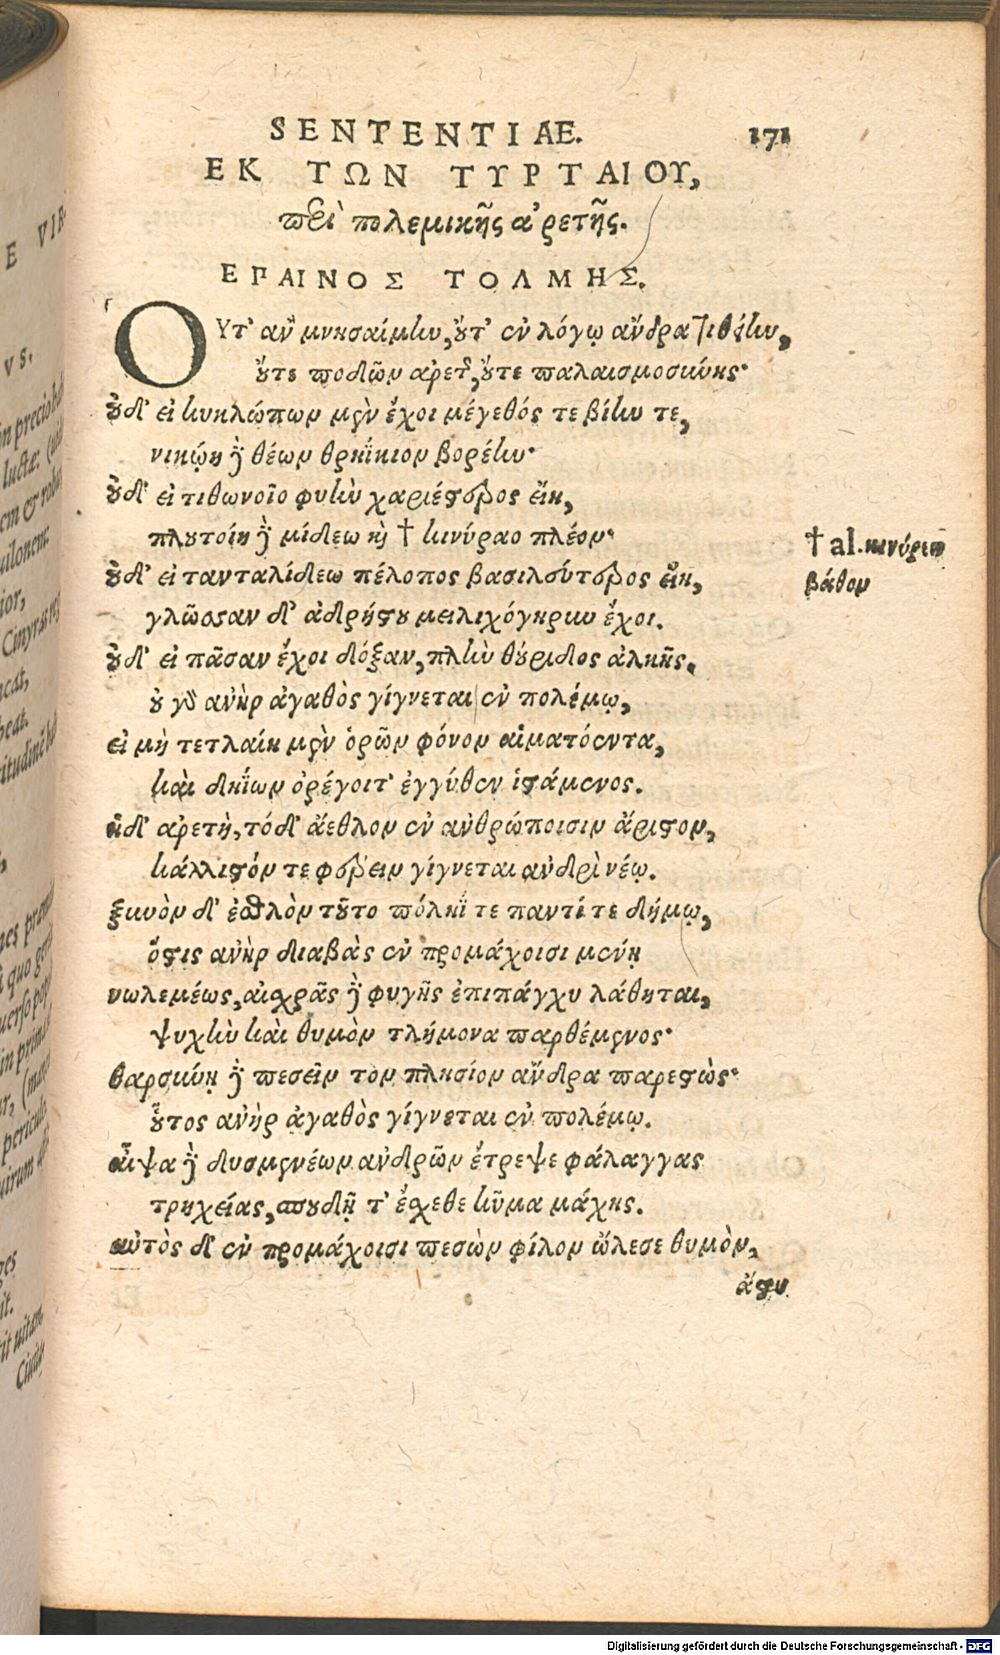 SENTENTIAE. 171
ΕΚ ΤΩΝ ΤΥΡΤΑΙΟΥ,
περὶ πολεμικῆς ἀρετῆς.
ΕΠΑΙΝΟΣ ΤΟΛΜΗΣ.
ΟΥτ' ἂν μνησαίμην, οὔτ' ἐν λόγῳ ἄνδρα τιθείην,
οὔτε ποδῶν ἀρετῆς, οὔτε παλαισμοσύνης·
οὐδ' εἰ κυκλώπων μὲν ἔχοι μέγεθός τε βίην τε,
νικῴη δὲ θέων θρηΐκιον βορέην·
οὐδ' εἰ τιθωνοῖο φυὴν χαριέστερος εἴη,
πλουτοίη δὲ μίδεω καὶ † κινύραο πλέον·
† al. κινύρεω
βάθον
οὐδ' εἰ τανταλίδεω πέλοπος βασιλεύτερος εἴη,
γλῶσσαν δ' ἀδρήστου μειλιχόγηρυν ἔχοι.
οὐδ' εἰ πᾶσαν ἔχοι δόξαν, πλὴν θούριδος ἀλκῆς.
οὐ γὰρ ἀνὴρ ἀγαθὸς γίγνεται ἐν πολέμῳ,
εἰ μὴ τετλαίη μὲν ὁρῶν φόνον αἱματόεντα,
καὶ δηΐων ὀρέγοιτ' ἐγγύθεν ἱστάμενος.
ἥδ' ἀρετὴ, τόδ' ἄεθλον ἐν ἀνθρώποισιν ἄριστον,
κάλλιστόν τε φέρειν γίγνεται ἀνδρὶ νέῳ.
ξυνὸν δ' ἐσθλὸν τοῦτο πόληΐ τε παντί τε δήμῳ,
ὅστις ἀνὴρ διαβὰς ἐν προμάχοισι μένῃ
νωλεμέως, αἰσχρᾶς δὲ φυγῆς ἐπιπάγχυ λάθηται,
ψυχὴν καὶ θυμὸν τλήμονα παρθέμενος·
θαρσύνῃ δὲ πεσεῖν τὸν πλησίον ἄνδρα παρεστὼς·
οὗτος ἀνὴρ ἀγαθὸς γίγνεται ἐν πολέμῳ.
αἶψα δὲ δυσμενέων ἀνδρῶν ἔτρεψε φάλαγγας
τρηχείας, σπουδῇ τ' ἔσχεθε κῦμα μάχης.
αὐτὸς δ' ἐν προμάχοισι πεσὼν φίλον ὤλεσε θυμὸν,
ἄστυ
Digitalisierung gefördert durch die Deutsche Forschungsgemeinschaft - DFG